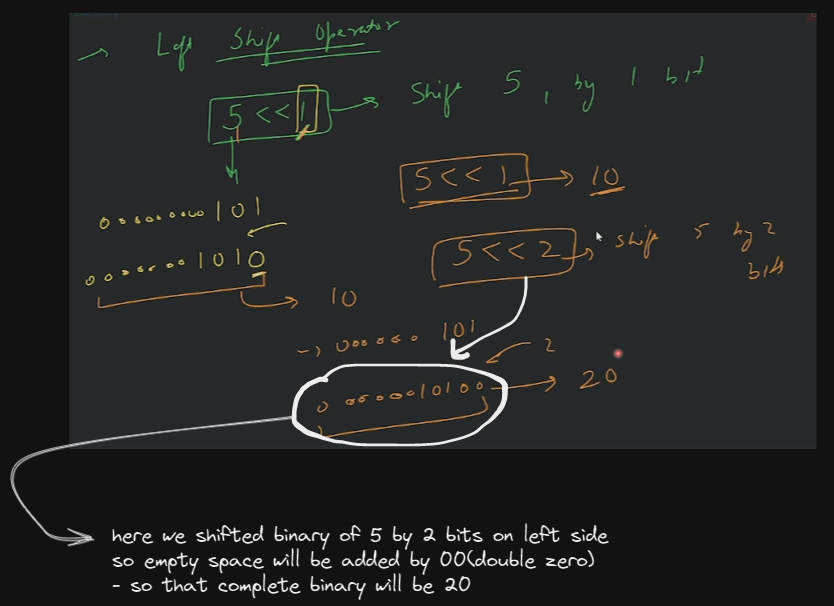 Left Shift Operator
5 << 1 → Shift 5, by 1 bit
00000000000101
5 << 1 → 10
00000001010
5 << 2 → Shift 5 by 2
bits
→ 10
→ 000000 101
2
0 00000010100 → 20
here we shifted binary of 5 by 2 bits on left side
so empty space will be added by 00(double zero)
- so that complete binary will be 20